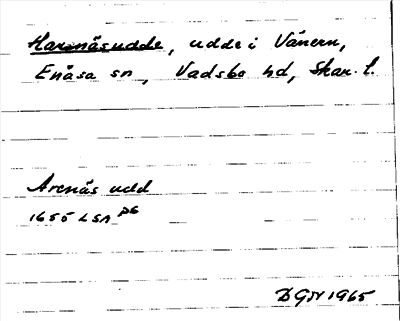 Harnäsudde, udde i Vänern,
Enåsa sn, Vadsbo hd, Skar. l.
Arenäs udd
1655 LSA P6
DGW 1965